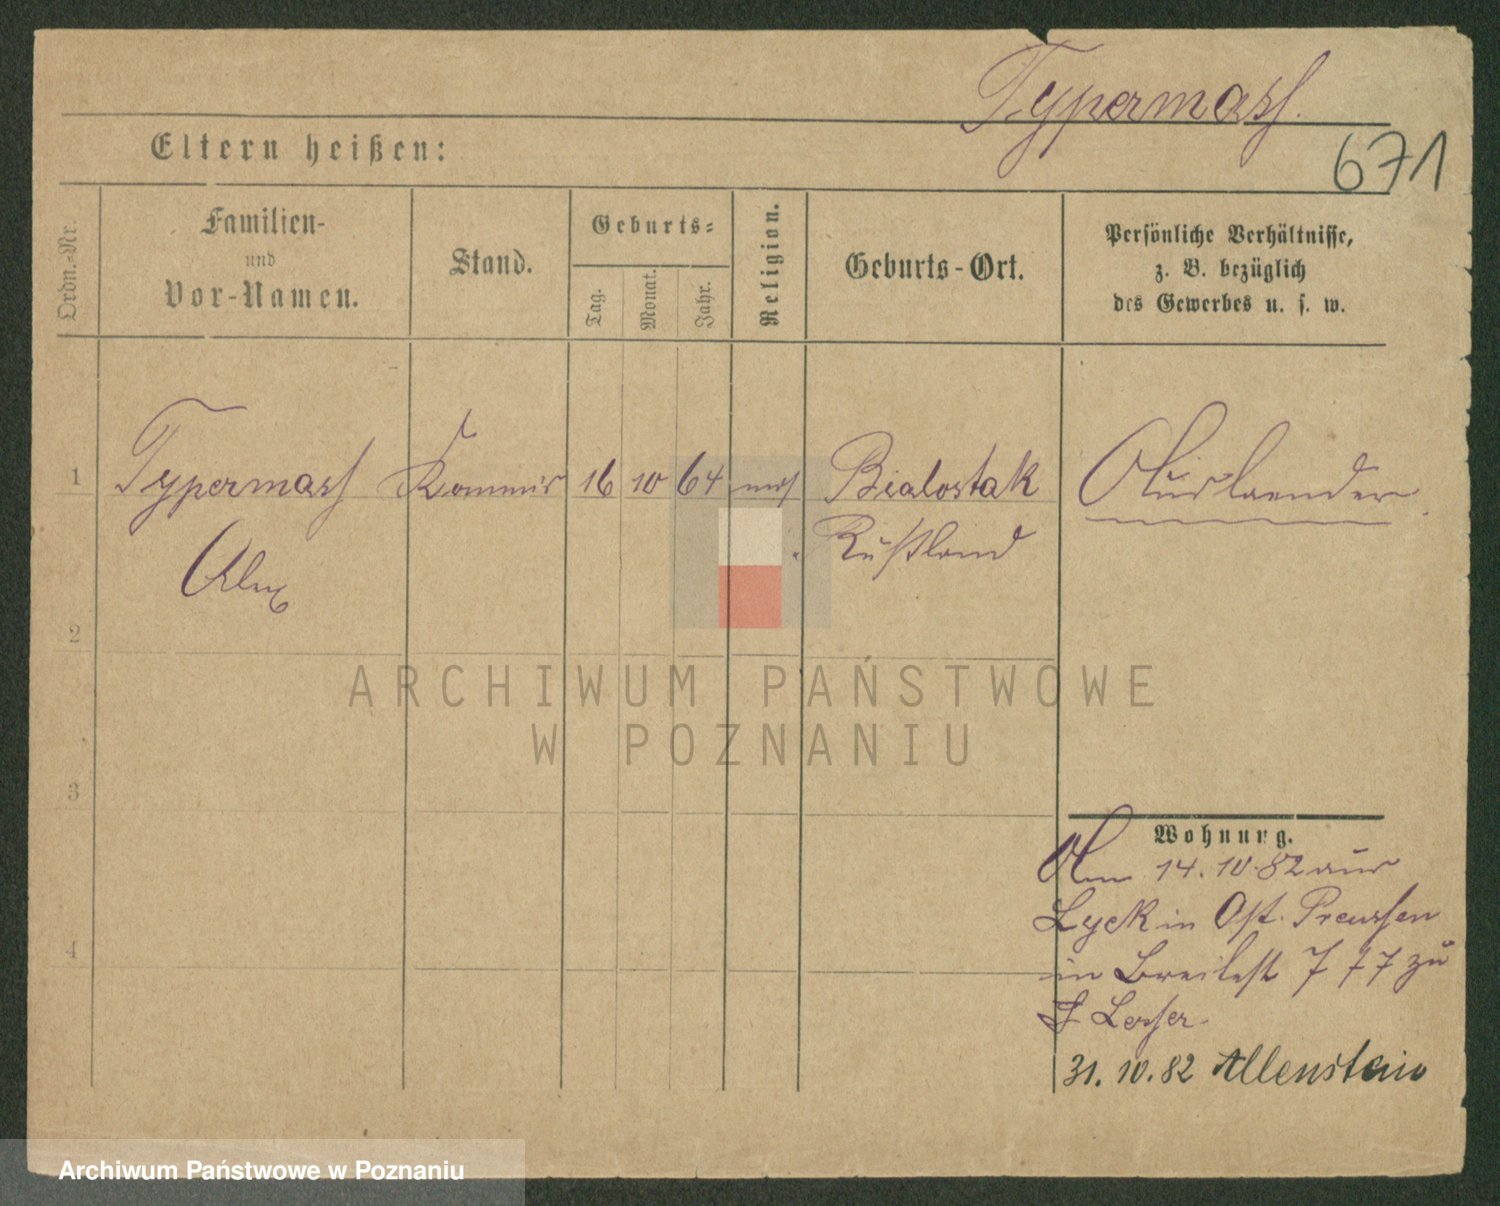 Typermass.
671
Eltern heißen:
Ordn.-Nr.
Familien-
und
Vor-Namen.
Stand.
Geburts-
Tag.
Monat.
Jahr.
Religion.
Geburts-Ort.
Persönliche Verhältnisse,
z. B. bezüglich
des Gewerbes u. s. w.
1 Typermass Kommis 16 10 64 mos Bialostak Auslaender
Alex Rußland
2
ARCHIWUM PAŃSTWOWE
W POZNANIU
3
Wohnung.
Am 14.10.82 aus
4
Lyck in Ost. Preussen
in Breitestr 7 zu
Lesser.
31.10.82 Allenstein
Archiwum Państwowe w Poznaniu